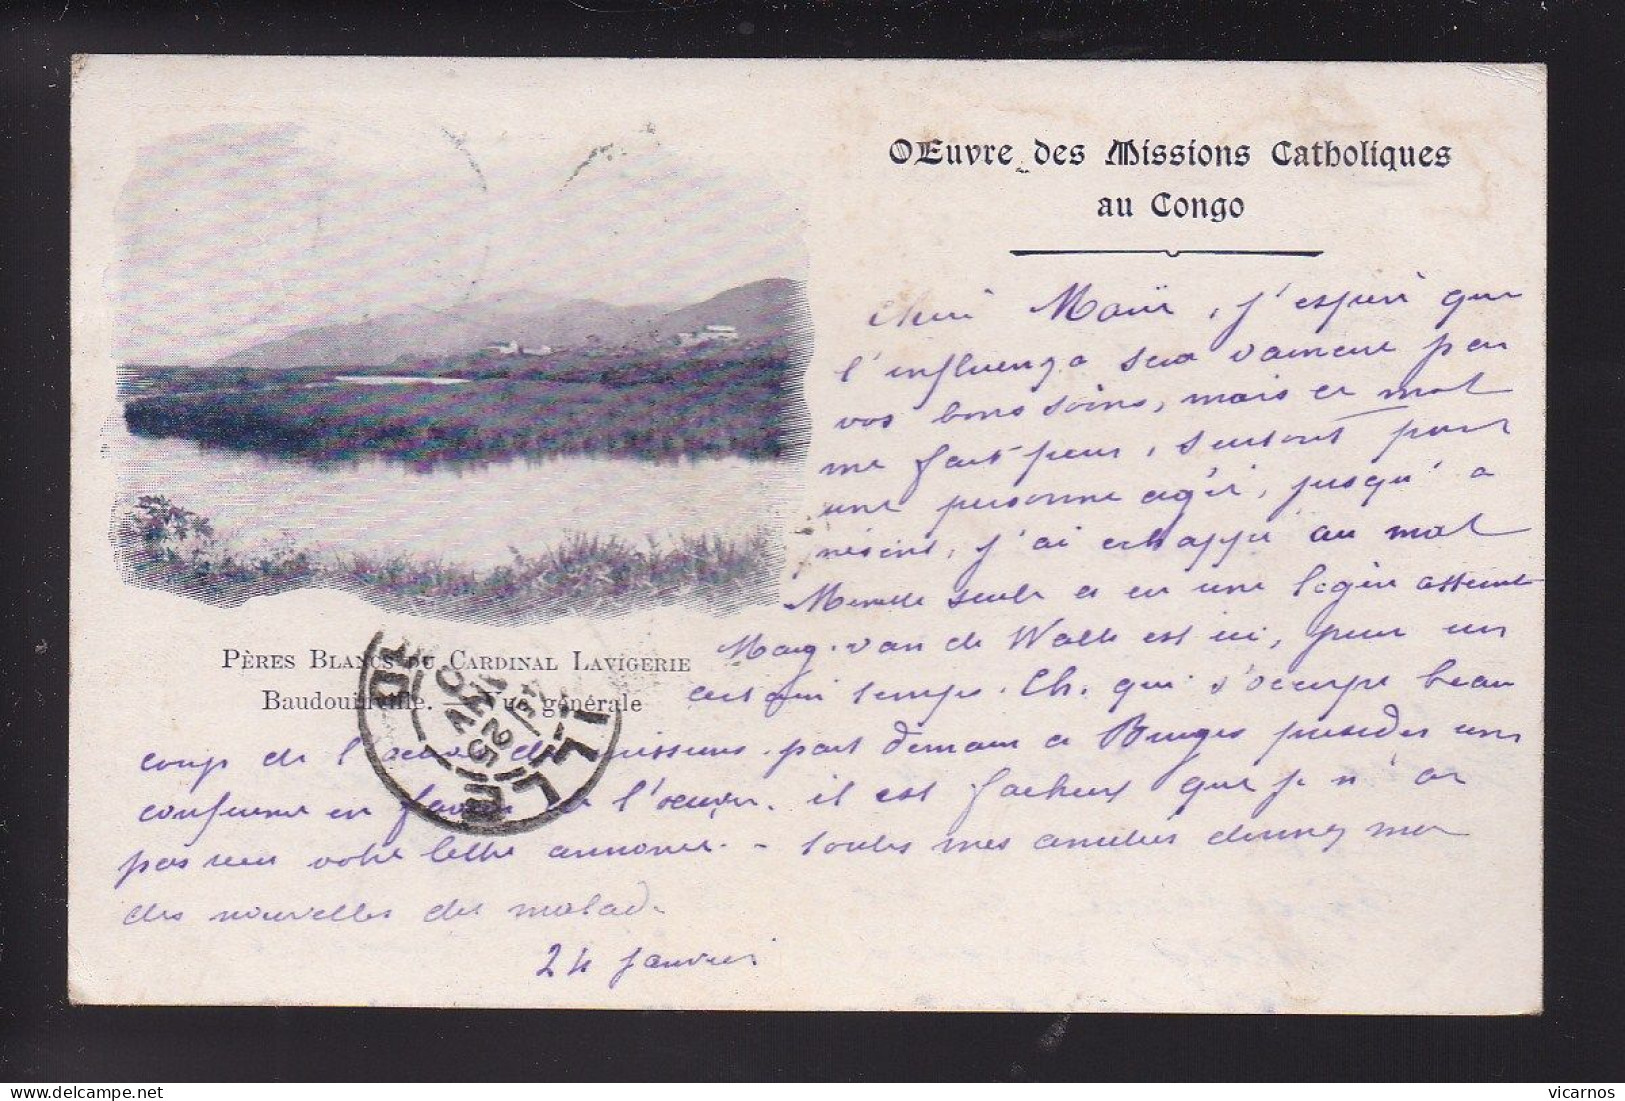 OEuvre des Missions Catholiques
au Congo
Chère Marie, j'espère que
l'influenza sera vaincue par
vos bons soins, mais ce mot
me fait peur, surtout pour
une personne âgée, jusqu'à
présent, j'ai échappé au mal
seule a eu une légère atteinte
Marg. van de Walle est ici, pour un
certain temps. Ch. qui s'occupe beau
coup de l'œuvre des missions part demain à Bruges présider une
conférence en faveur de l'œuvre. il est facheux que je n'ai
pas reçu votre lettre annoncée. - toutes mes amitiés donnez moi
des nouvelles des malad.
24 Janvier
PÈRES BLANCS DU CARDINAL LAVIGERIE
Baudouinville. — Vue générale
LILLE
25
vicarnos